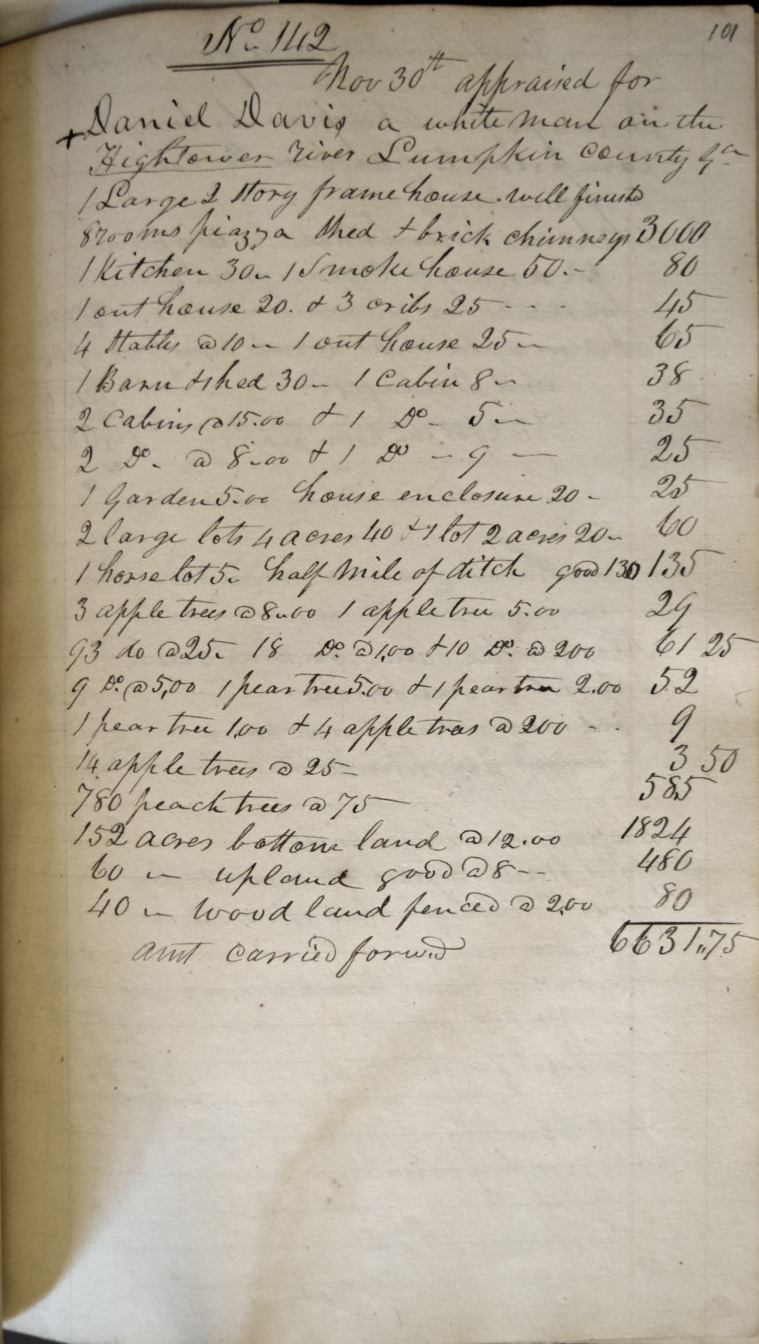 101
No. 142
Nov 30th appraised for
+ Daniel Davis a white man on the
Hightower river Lumpkin county Ga
1 Large 2 story frame house well finishd
8 rooms piazza shed + brick chimneys 3000
1 Kitchen 30~ 1 Smoke house 50.- 80
1 out house 20. + 3 cribs 25 - - - 45
4 Stables @ 10 ~ 1 out house 25 ~ 65
1 Barn + shed 30~ 1 Cabin 8~ 38
2 Cabins @ 15.00 + 1 Do - 5 ~ 35
2 Do - @ 8.00 + 1 Do - 9 - 25
1 Garden 5.00 house enclosure 20 - 25
2 large lots 4 acres 40 + 1 lot 2 acres 20~ 60
1 horse lot 5~ half mile of ditch good 130 135
3 apple trees @ 8.00 1 apple tree 5.00 29
93 do @ 25~ 18 Do. @ 1,00 + 10 Do. @ 200 61 25
9 Do. @ 5,00 1 pear tree 5.00 + 1 pear tree 2.00 52
1 pear tree 1,00 + 4 apple trees @ 200 - - 9
14 apple trees @ 25 - 3 50
780 peach trees @ 75 - 585
152 acres bottom land @ 12.00 1824
60 ~ upland good @ 8 - - 480
40 ~ wood land fenced @ 2,00 80
amt carried forwd 6631,,75